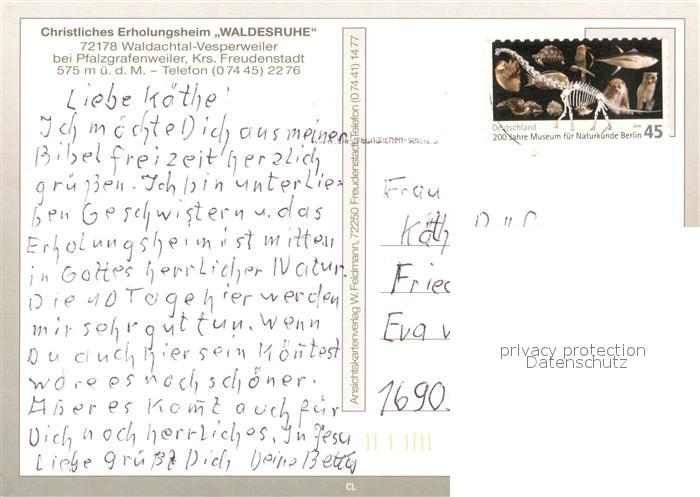 Christliches Erholungsheim „WALDESRUHE"
72178 Waldachtal-Vesperweiler
bei Pfalzgrafenweiler, Krs. Freudenstadt
575 m ü. d. M. – Telefon (0 74 45) 22 76
Liebe Käthe!
Ich möchte Dich aus meiner
Bibelfreizeit herzlich
grüßen. Ich bin unter lie-
ben Geschwistern u. das
Erholungsheim ist mitten
in Gottes herrlicher Natur.
Die 10 Tage hier werden
mir sehr gut tun. Wenn
Du auch hier sein köntest
wäre es noch schöner.
Aber es komt auch für
Dich noch herrliches. In Jesu
Liebe grüßt Dich Deine
Ansichtskartenverlag W. Feldmann, 72250 Freudenstadt, Telefon (0 74 41) 14 77
Deutschland
200 Jahre Museum für Naturkunde Berlin 45
Frau
Käth
Fried
Eva
1690
privacy protection
Datenschutz
CL